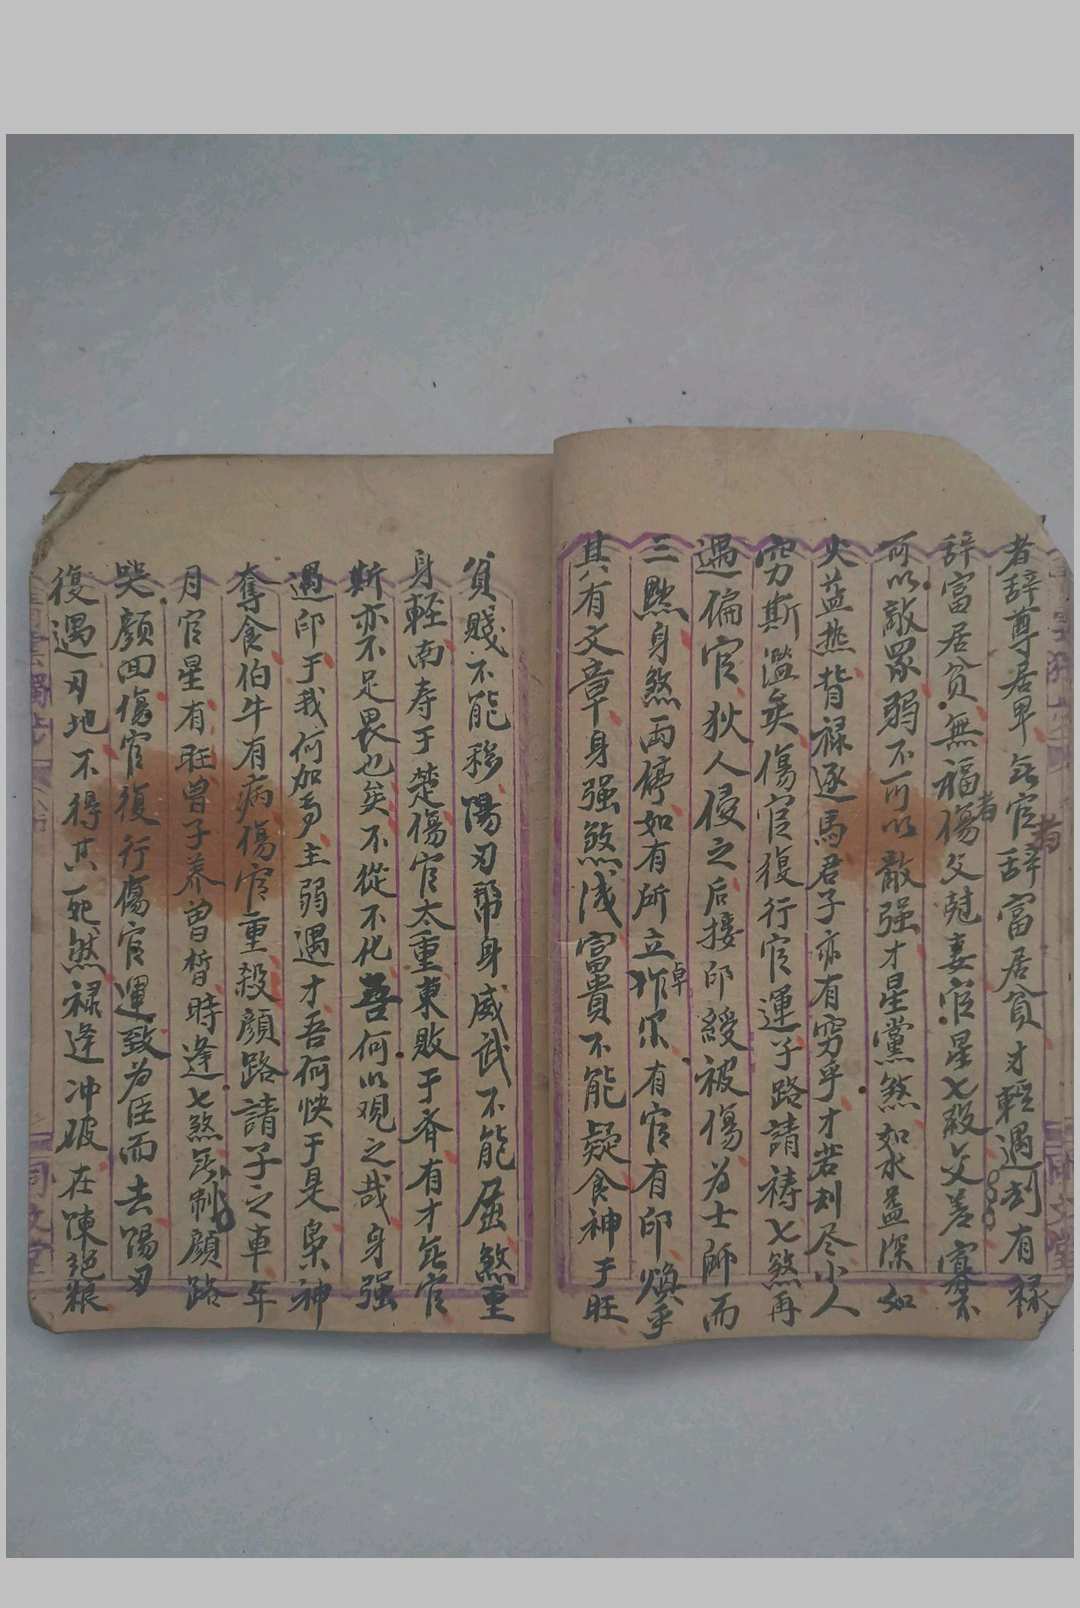 者辞尊居卑无官辞富居貧才輕遇刦有禄
辞富居貧無福傷者父尅妻官星七殺交差寡不
可以敵眾弱不可以敵强才星黨煞如水益深如
火益热背禄逐馬君子亦有穷乎才若刦尽小人
穷斯濫矣傷官復行官運子路請禱七煞再
遇偏官狄人侵之后接印綬被傷为士師而
三黙身煞両停如有所立卓尔有官有印煥乎
其有文章身强煞浅富貴不能疑食神于旺
貧賤不能移陽刃帮身威武不能屈煞重
身軽南寿于楚傷官太重東敗于齐有才无官
斯亦不足畏也矣不從不化吾何以观之哉身强
遇印于我何加焉主弱遇才吾何快于是梟神
奪食伯牛有病傷官重殺顔路請子之車年
月官星有旺曾子养曾皙時逢七煞无制顔路
哭顔回傷官復行傷官運致为臣而去陽刃
復遇刃地不得其死然禄逢冲破在陳絕粮
同文堂